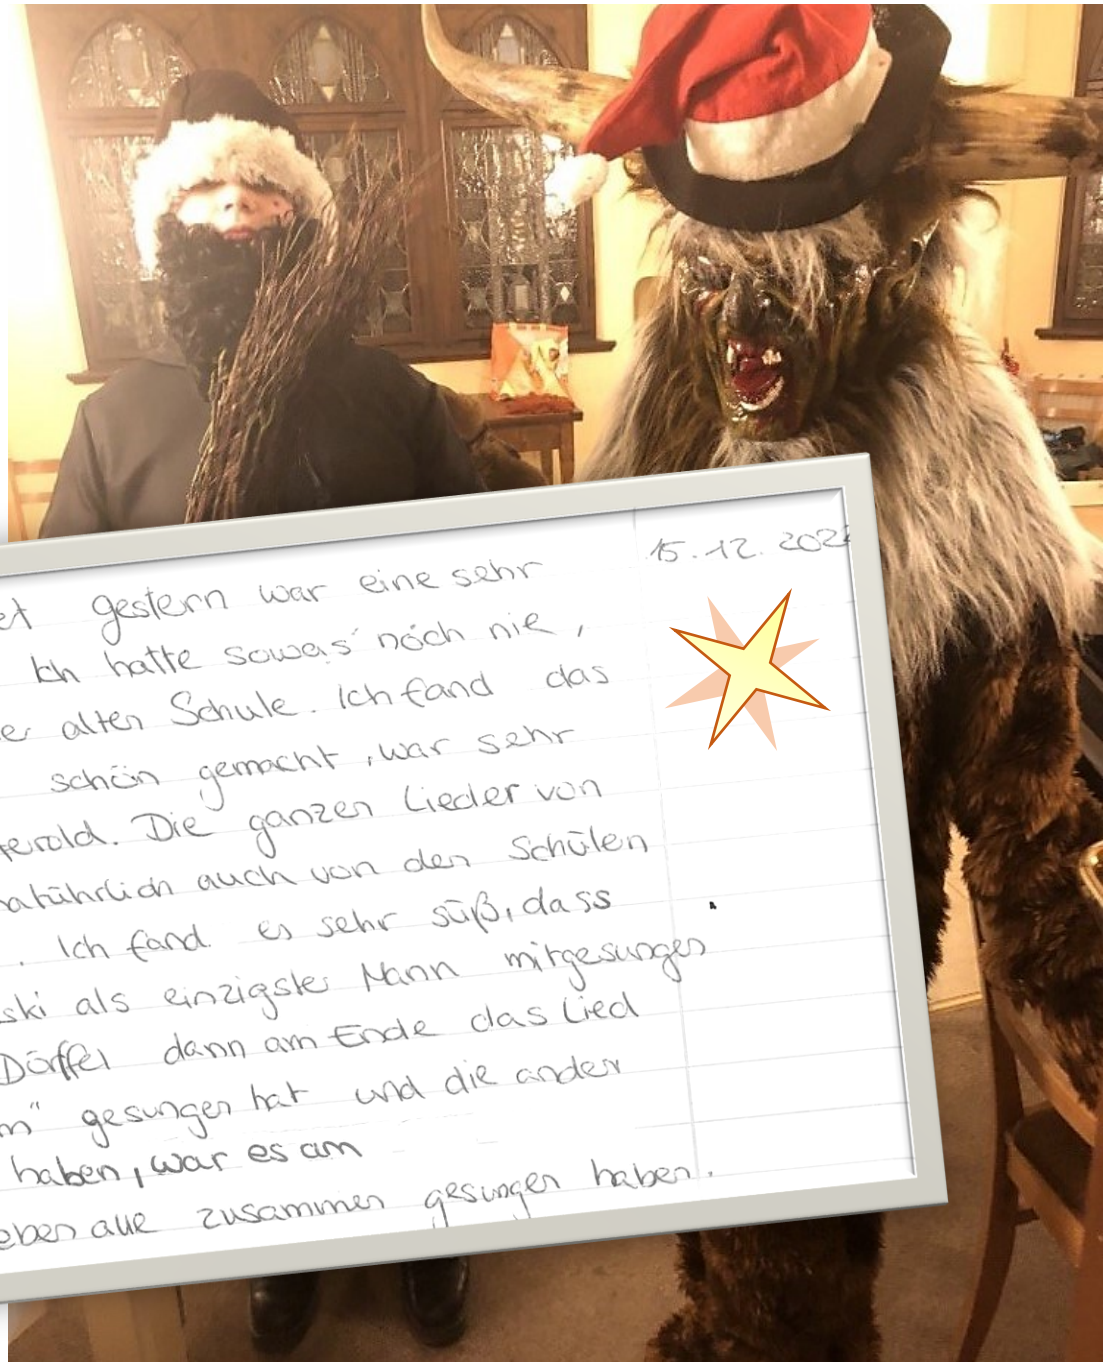 15.12.202
gestern war eine sehr
Ich hatte sowas noch nie,
alten Schule. Ich fand das
schön gemacht, war sehr
ferold. Die ganzen Lieder von
natührlich auch von den Schülen
. Ich fand es sehr süß, dass
ski als einzigster Mann mitgesungen
Dörffel dann am Ende das Lied
m" gesungen hat und die ander
haben, war es am
eben alle zusammen gesungen haben.